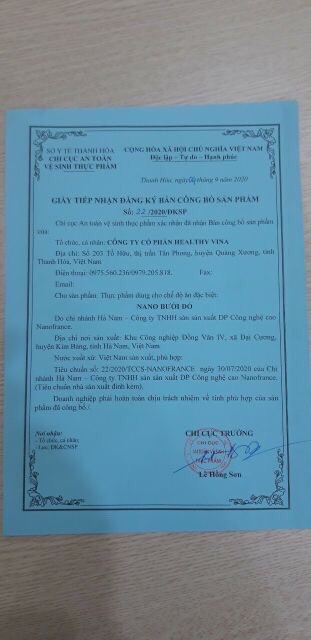 SỞ Y TẾ THANH HÓA
CHI CỤC AN TOÀN
VỆ SINH THỰC PHẨM
CỘNG HÒA XÃ HỘI CHỦ NGHĨA VIỆT NAM
Độc lập – Tự do – Hạnh phúc
Thanh Hóa, ngày tháng 9 năm 2020
GIẤY TIẾP NHẬN ĐĂNG KÝ BẢN CÔNG BỐ SẢN PHẨM
Số: 22 /2020/ĐKSP
Chi cục An toàn vệ sinh thực phẩm xác nhận đã nhận Bản công bố sản phẩm
của:
Tổ chức, cá nhân: CÔNG TY CỔ PHẦN HEALTHY VINA
Địa chỉ: Số 203 Tố Hữu, thị trấn Tân Phong, huyện Quảng Xương, tỉnh
Thanh Hóa, Việt Nam
Điện thoại: 0975.560.236/0979.205.818. Fax:
Email:
Cho sản phẩm: Thực phẩm dùng cho chế độ ăn đặc biệt:
NANO BƯỞI ĐỎ
Do chi nhánh Hà Nam – Công ty TNHH sản xuất DP Công nghệ cao
Nanofrance.
Địa chỉ nơi sản xuất: Khu Công nghiệp Đồng Văn IV, xã Đại Cương,
huyện Kim Bảng, tỉnh Hà Nam, Việt Nam
Nước xuất xứ: Việt Nam sản xuất, phù hợp:
Tiêu chuẩn số: 22/2020/TCCS-NANOFRANCE ngày 30/07/2020 của Chi
nhánh Hà Nam – Công ty TNHH sản xuất DP Công nghệ cao Nanofrance.
(Tiêu chuẩn nhà sản xuất đính kèm).
Doanh nghiệp phải hoàn toàn chịu trách nhiệm về tính phù hợp của sản
phẩm đã công bố./.
Nơi nhận:
- Tổ chức, cá nhân;
- Lưu: ĐK&CNSP.
CHI CỤC TRƯỞNG
CHI CỤC
AN TOÀN VỆ SINH
THỰC PHẨM
Lê Hồng Sơn